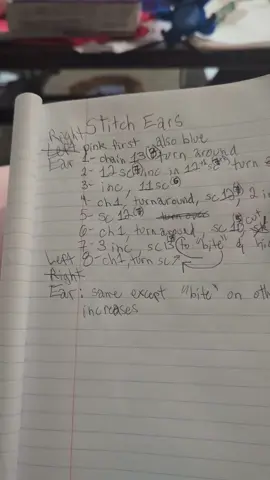 Stitch Ears
Right
Left pink first, also blue
Ear 1- chain 13(8) turn around
2- 12 sc(7) inc in 12th sc turn
3- inc, 11sc(6)
4- ch1, turn around, sc 12, 2 in
5- sc 12(7) turn over
6- ch1, turn around, sc 10, cut
7- 3 inc, sc to "bite" &
Left 8- ch1, turn sc 7
Right
Ear: same except "bite" on oth
increases